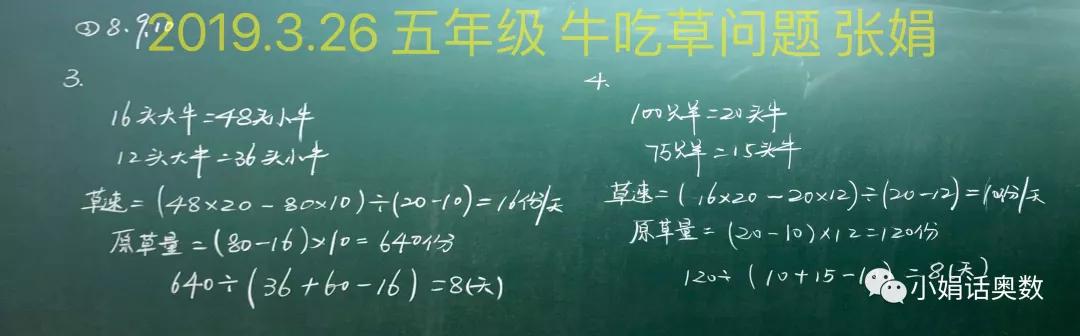 ③ 8. 9. 10
2019.3.26 五年级 牛吃草问题 张娟
3.
16头大牛=48头小牛
12头大牛=36头小牛
草速=(48×20-80×10)÷(20-10)=16份/天
原草量=(80-16)×10=640份
640÷(36+60-16)=8(天)
4.
100只羊=20头牛
75只羊=15头牛
草速=(16×20-20×12)÷(20-12)=10份/天
原草量=(20-10)×12=120份
120÷(10+15-1 )=8(天)
小娟话奥数